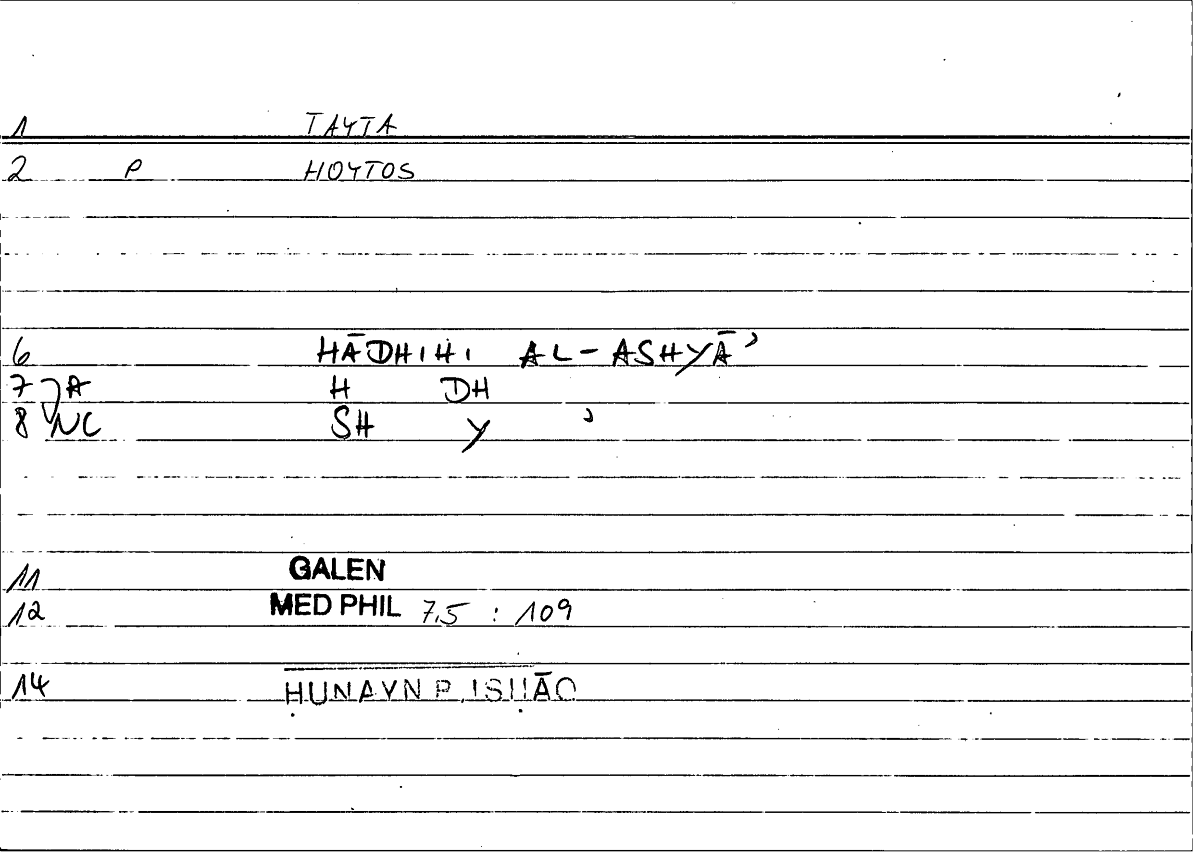 1 TAYTA
2 P HOYTOS
6 HĀDHIHI AL-ASHYĀʾ
7 A H DH
8 NC SH Y ʾ
11 GALEN
12 MED PHIL 7,5 : 109
14 ḤUNAYN B. ISḤĀQ